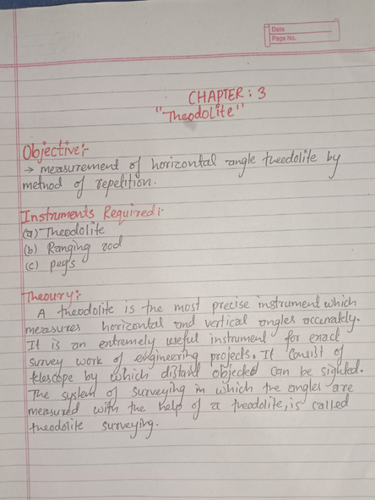 Date
Page No.
CHAPTER : 3
"Theodolite"
Objective:-
→ measurement of horizontal angle theodolite by
method of repetition.
Instruments Required:-
(a) Theodolite
(b) Ranging rod
(c) pegs
Theoury:-
A theodolite is the most precise instrument which
measures horizontal and vertical angles accurately.
It is an extremely useful instrument for exact
survey work of engineering projects. It consist of
telescope by which distant objected can be sighted.
The system of surveying in which the angles are
measured with the help of a theodolite, is called
theodolite surveying.